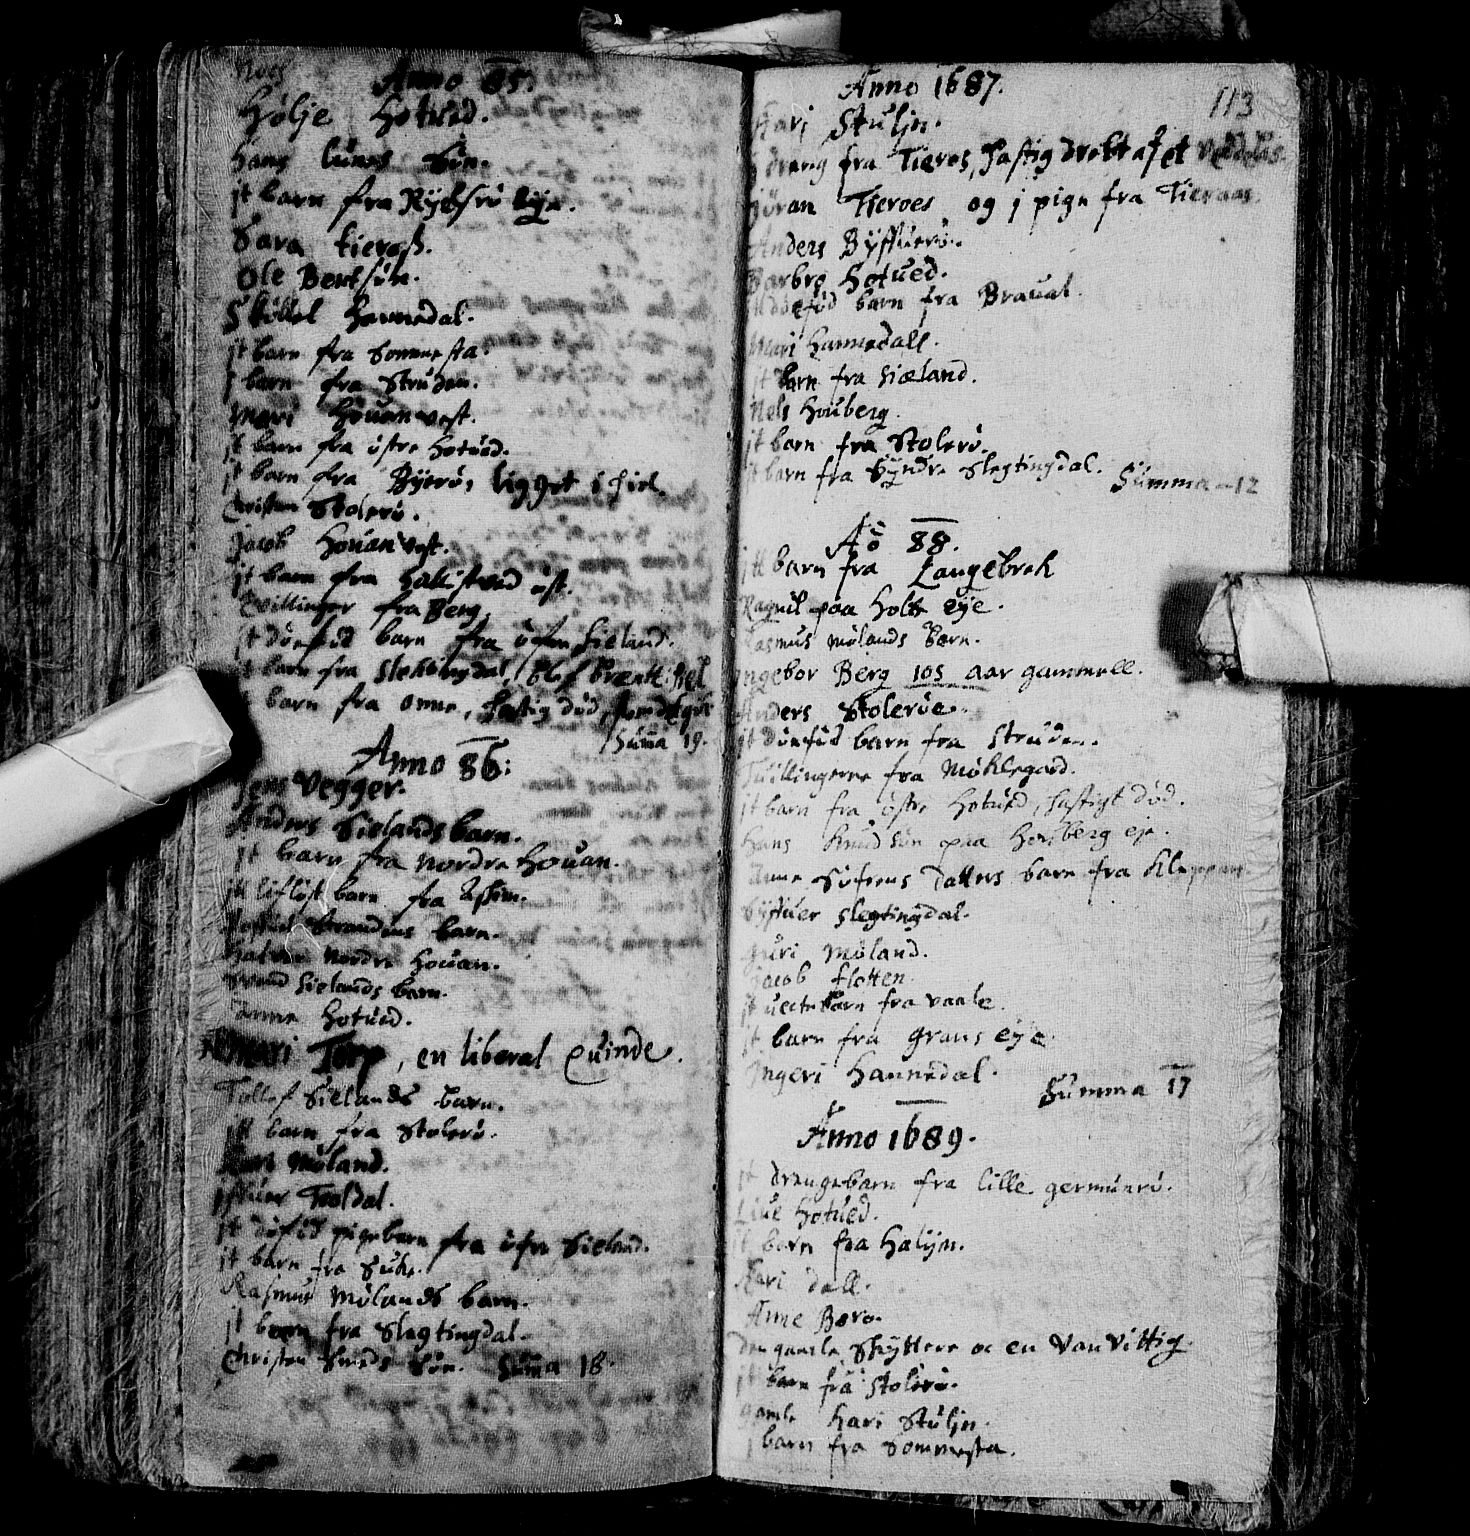 Anno 85.
Hølje Hotued.
Hans Lunds Søn.
jt barn fra Rychsrø Eye.
Sara Tieraas.
Ole Bentsøn.
Skøllel Hannedal.
jt barn fra Sommesta.
j barn fra Struden.
Mari Houen vest.
jt barn fra østre Hotued.
jt barn fra Byerø, ligget i hiel.
Christen Stolerø.
Jacob Houan vest.
jt barn fra Hallistved øst.
Tvillinger fra Berg.
jt døefød barn fra øfre Sieland.
jt barn fra Slektingdal, blef brentt ihiel
barn fra Onne, hastig død,
Suma 19.
Anno 86:
Jens Vegger.
Anders Sielands barn.
jt barn fra Nordre Houan.
jtt lifløst barn fra Askim.
Strandens barn.
Halvor Nordre Houan.
Sielands barn.
Anne Hotued.
Mari Torp, en liberal Quinde.
Tollef Sielands barn.
jtt barn fra Stolerø.
Kari Møland.
Troldal.
jt døfød pigebarn fra øfre Sieland.
jt barn fra
Rasmus Mølands barn.
jt barn fra Slegtingdal.
Christen Smeds Søn. Suma 18.
113
Anno 1687.
Kari Stuljn.
j dreng fra Tieros, hastig drebt af et
Gøran Tieroes og j pige fra Tieraas.
Anders Byffuerø.
Barbro Hotued.
jt døefød barn fra Braual.
Mari Hannedall.
jt barn fra Siæland.
Nels Houberg.
jt barn fra Stolerø.
jt barn fra Syndre Slegtingdal.
Summa - 12
Aō 88.
jtt barn fra Langebrek
Ragnil paa Holte eye.
Rasmus Mølands barn.
Ingebor Berg 105 aar gammell.
Anders Stolerøe.
jt døefød barn fra Struden.
Tuillingerne fra Møklegard.
jt barn fra østre Hotued, hastigt død.
Hans Knudsøn paa Houberg eje.
Anne Sifrens datters barn fra
Byffuer Slegtingdal.
Guri Møland.
Jacob Flotten.
jt uectebarn fra Vaale.
jt barn fra Grans eye.
Ingeri Hannedal.
Summa 17
Anno 1689.
jt drengebarn fra lille Germunrø.
Liue Hotued.
jt barn fra Halijn.
Kari Dall.
Anne Berø.
Den gamle Skyttere oc en Vanvittig
jt barn fra Stolerø.
Gamle Kari Stuljn.
j barn fra Sommesta.